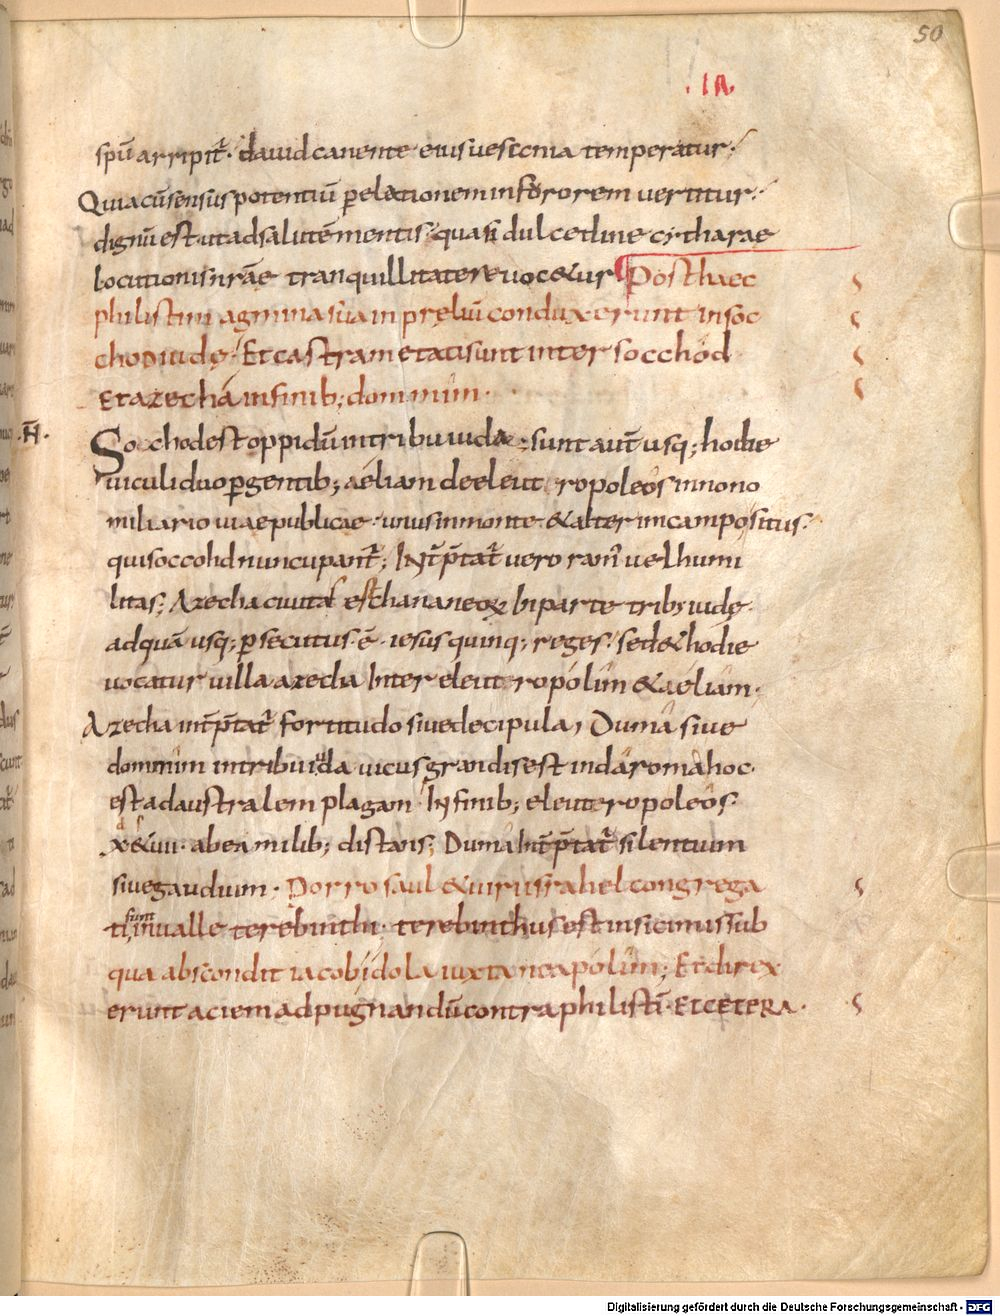 50
.IA.
spū arripit̄· dauid canente eius uesania temperatur·
Quia cū sensus potentiū p elationem in fororem uertitur·
dignū est ut ad salutē mentis· quasi dulcedine cytharae
locutionis nrāe tranquillitate reuocetur Post haec
philistini agmina sua in pręliū conduxerunt in soc
cho iudę· Et castrametati sunt inter socchod
Et azecha in finib; dommim·
.H̄. Socchod est oppidū in tribu iuda· sunt aut̄ usq; hodie
uiculi duo p gentib; aeliam de eleuteropoleos in nono
miliario uiae publicae· unus in monte & alter in campo situs·
qui soccohd nuncupant̄; Int̄p̄tat̄ uero rami uel humi
litas; Azecha ciuitas est chananeoꝝ bi parte trib; iudę·
ad quā usq; p secutus ·ē· iesus quinq; reges· sed & hodie
uocatur uilla azecha Inter eleuteropolim & aeliam·
Azecha int̄p̄tat̄ fortitudo siue decipula, Duma siue
dommim in tribu iuda uicus grandis est in daroma hoc·
est ad australem plagam· In finib; eleuteropoleos·
x & uii· ab ea milib; distans; Duma Int̄p̄tat̄ silentium
siue gaudium· Porro saul & uiri israhel congrega
ti sunt in ualle terebinthi· terebinthus est in sicimis sub
qua abscondit iacob idola iuxta neapolim; Et direx
erunt aciem ad pugnandū contra philistī· Et cetera·
Digitalisierung gefördert durch die Deutsche Forschungsgemeinschaft - DFG